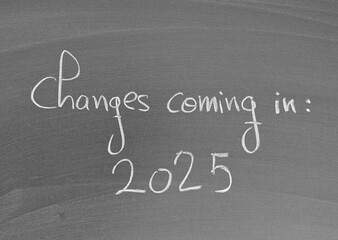 Changes coming in:
2025